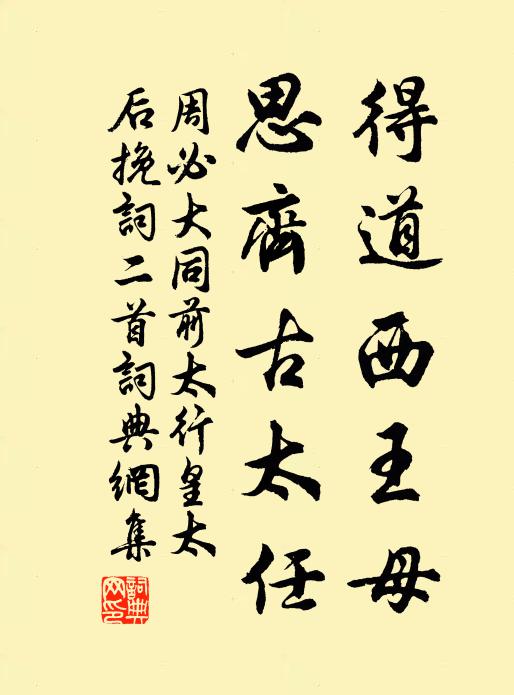 得道西王母
思齊古太任
周必大同前太行皇太
后挽詞二首詞典網集
詞典網印